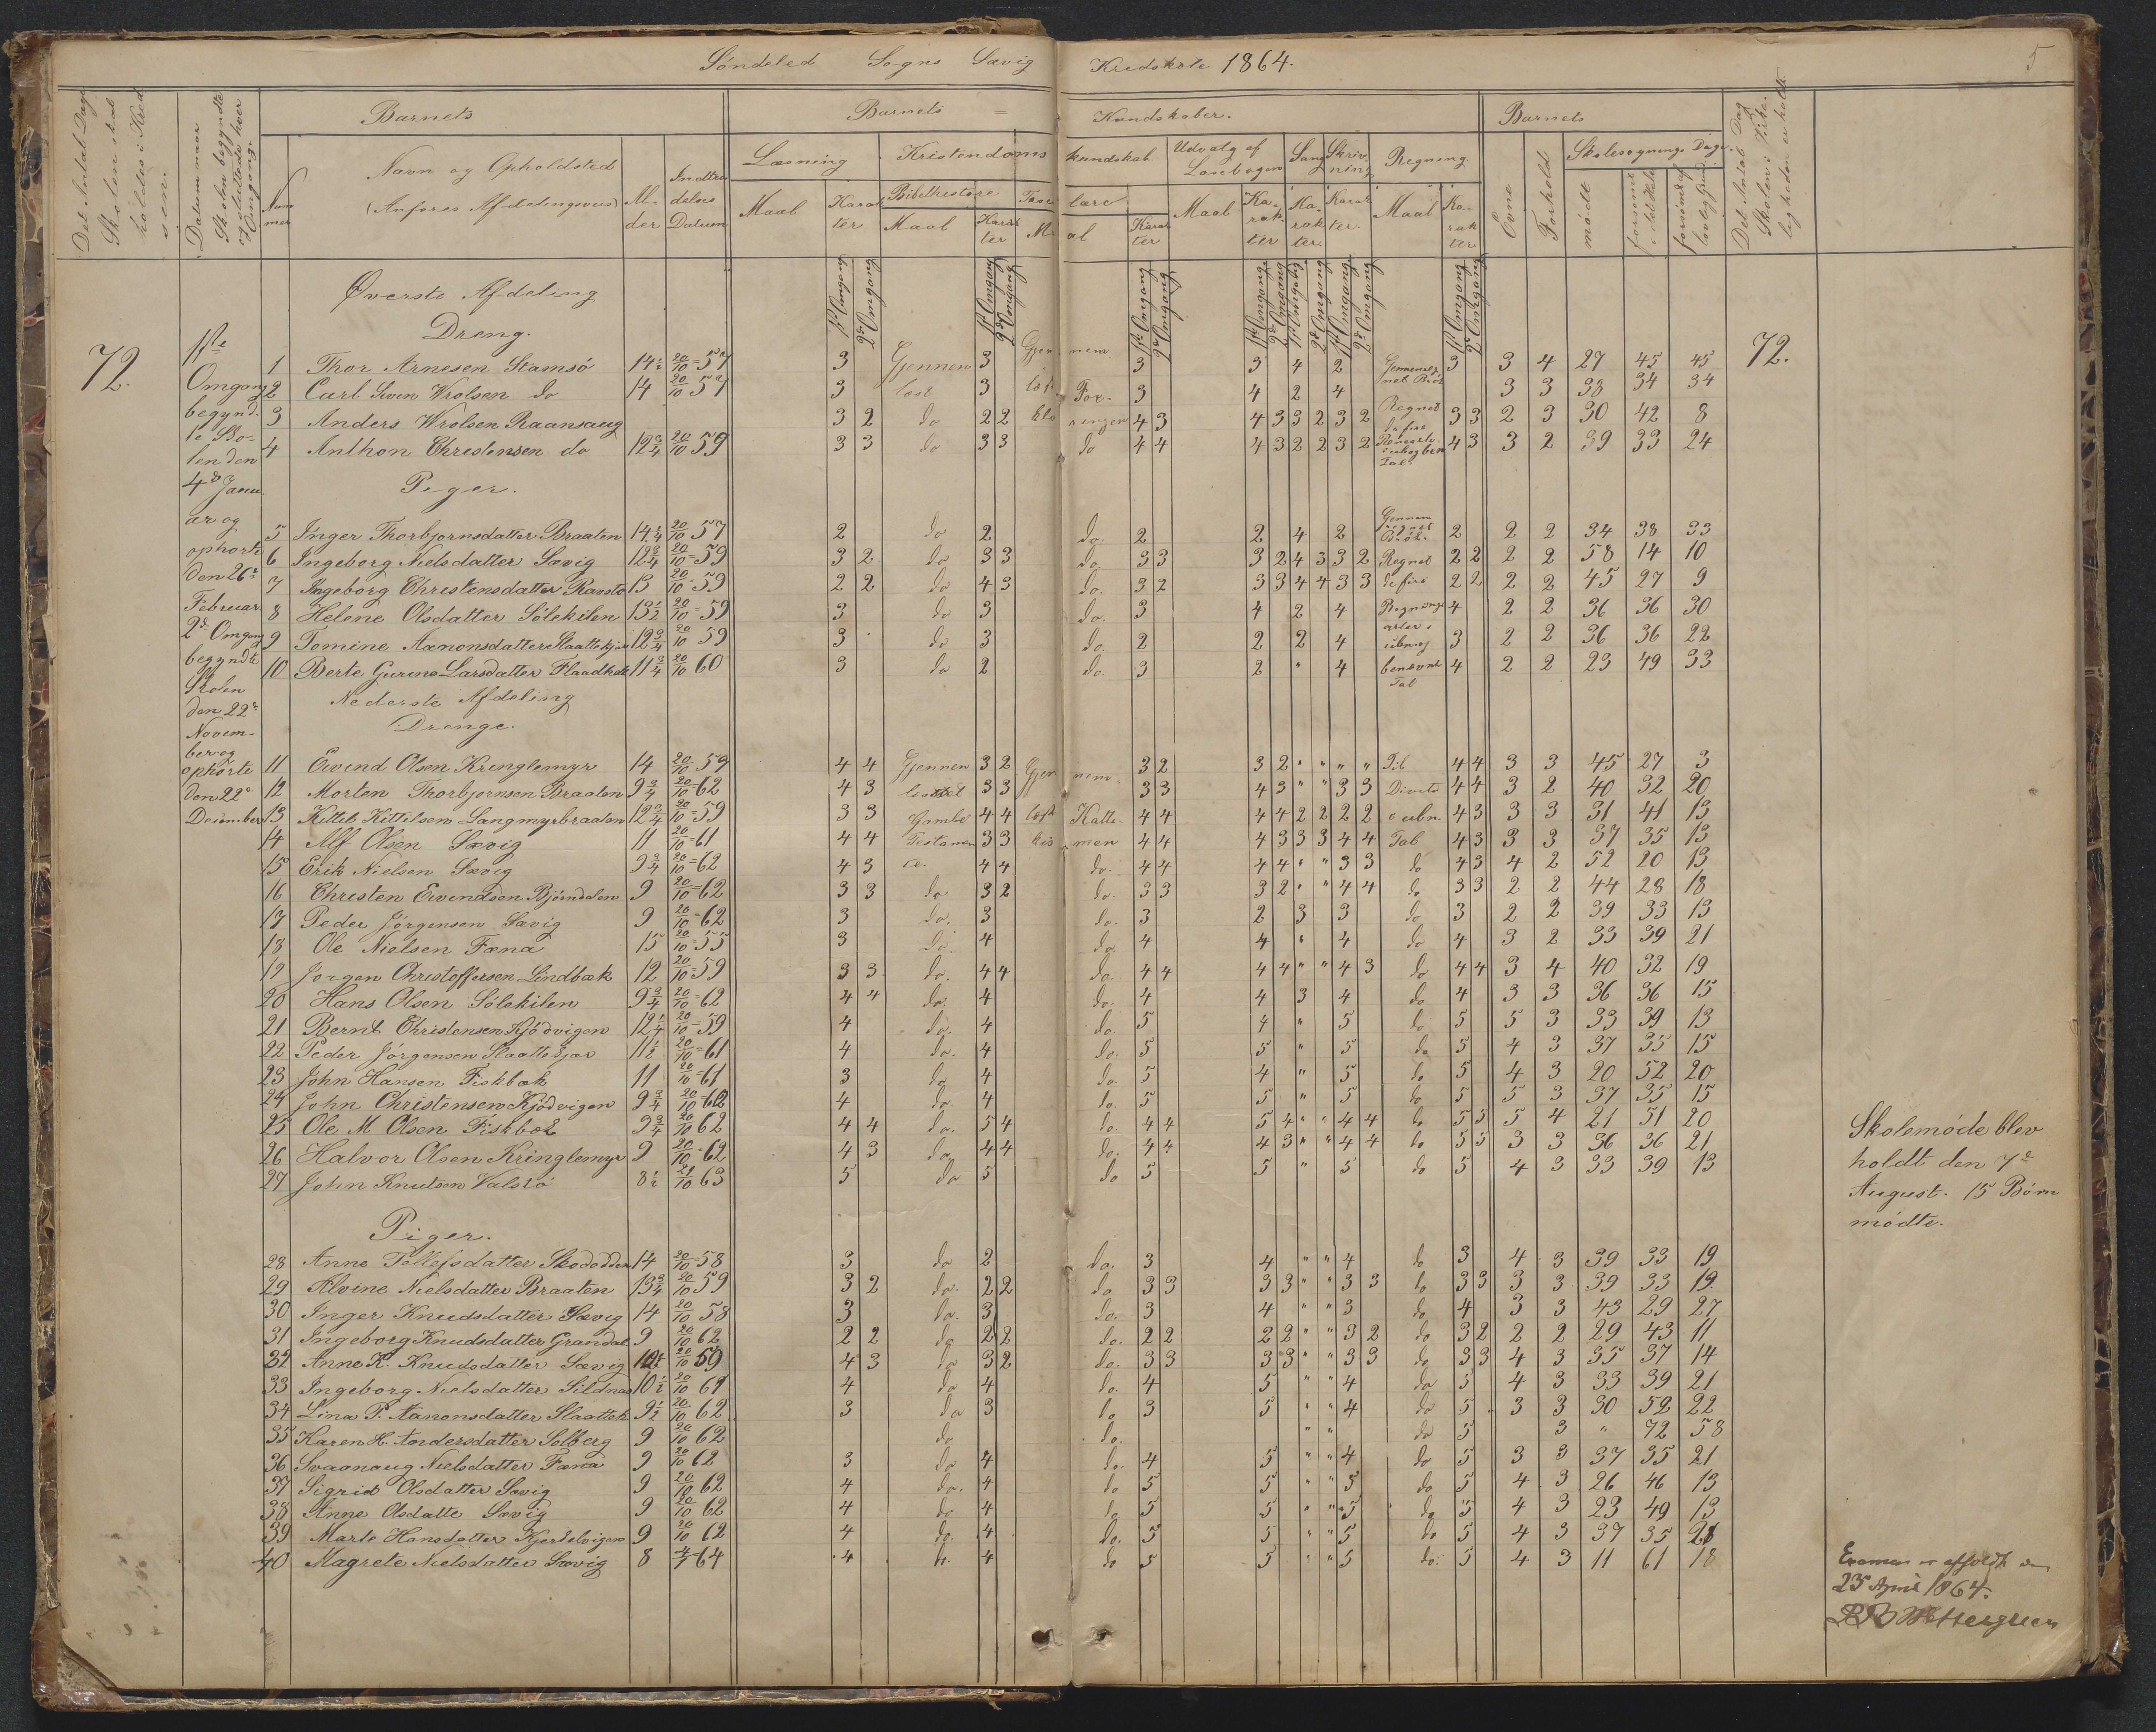 Söndeled Sogns Sævig Kredskole 1864.
5
Det Antal Dage Skolen skal holdes i Kredsen.
Datum naar Skolen begyndte og sluttede hver Omgang.
Barnets
Barnets Kundskaber.
Barnets
Det Antal Dage Skolen i Virkeligheden er holdt.
Nummer
Navn og Opholdsted
(Anføres Afdelingsvis)
Alder
Indtrædelses Datum
Læsning
Kristendomskundskab
Udvalg af Læsebogen
Sang
Skrivning
Regning
Evne
Forhold
Skolesögnings Dage
Maal
Karakter
Bibelhistorie
Troeslære
mödte
forsömt
1ste Omgang
2d Omgang
Øverste Afdeling
Dreng.
72.
1ste Omgang begyndte Skolen den 4de Januar og ophörte den 26e Februar
2d Omgang begyndte Skolen den 22e November og ophörte den 22e December
72.
1 Thor Arnesen Stamsö 14½ 20/10=57 3 Gjennem 3 Gjennem 3 3 4 2 3 3 4 27 45 45
2 Carl Sven Wrolsen do 14 20/10 57 3 læst 3 læst For- 3 4 2 4 3 3 38 34 34
3 Anders Wrolsen Raansaug 3 2 do 2 2 4 3 4 3 3 2 3 2 Regnet 3 3 2 3 30 42 8
4 Anthon Christensen do 12¾ 20/10 59 3 3 do 3 3 do 4 4 4 3 2 2 3 2 4 3 3 2 39 33 24
Piger.
5 Inger Thorbjornsdatter Braaten 14¼ 20/10 57 2 do 2 do. 2 2 4 2 2 2 2 34 38 33
6 Ingeborg Nielsdatter Sævig 12¾ 20/10=59 3 2 do 3 3 do 3 3 3 2 4 3 3 2 Regnet 2 2 2 2 58 14 10
7 Ingeborg Christensdatter Ransto 13 20/10 59 2 2 do 4 3 do. 3 2 3 3 4 4 3 3 de fire 2 2 2 2 45 27 9
8 Helene Olsdatter Sölekilen 13½ 20/10=59 3 do 3 do. 3 4 2 4 4 2 2 36 36 30
9 Tomine Nanonsdatter 12¾ 20/10 59 3 do 3 do. 2 2 2 4 3 2 2 36 36 22
10 Berte Gurine Larsdatter 11¾ 20/10 60 3 do 2 do. 3 2 " 4 benævnt Tal 4 2 2 23 49 33
Nederste Afdeling
Drenge.
11 Eivind Olsen Kringlemyr 14 20/10=59 4 4 Gjennem 3 2 Gjennem 3 2 3 2 " " " " 4 4 3 3 45 27 3
12 Morten Thorbjornsen Braaten 9¾ 20/10=62 4 3 3 3 3 3 4 3 " " 3 3 4 4 3 2 40 32 20
13 Kittil Kittilsen Langmyrbraaten 12¾ 20/10=59 3 3 Gamle 4 4 læst Kate- 4 4 4 4 2 2 2 2 i ubn. 4 3 3 3 31 41 13
14 Alf Olsen Sævig 11 20/10=61 4 4 Testamen 3 3 4 4 4 3 3 3 4 4 Tal 4 3 3 3 37 35 13
15 Erik Nielsen Sævig 9¾ 20/10=62 4 3 4 4 do. 4 4 4 4 " " 3 3 do 4 3 4 2 52 20 13
16 Christen Eivindsen Bjorndalen 9 20/10=62 3 3 do 3 2 do. 3 3 3 2 " " 4 4 do 3 3 2 2 44 28 18
17 Peder Jörgensen Sævig 9 20/10=62 3 do. 3 do. 3 2 3 3 do 3 2 2 39 33 13
18 Ole Nielsen Fæna 15 20/10=55 3 do. 4 do 4 4 " 4 do 4 3 2 33 39 21
19 Jorgen Christoffersen Lindbæk 12 20/10=59 3 3 do. 4 4 do. 4 4 4 4 " " 4 3 do 4 4 3 4 40 32 19
20 Hans Olsen Sölekilen 9¾ 20/10=62 4 4 do. 4 do. 4 4 3 4 do 4 3 3 36 36 15
21 Bernt Christensen Kjödvigen 12¼ 20/10=59 4 do. 4 do. 5 4 " 5 do 5 5 3 33 39 13
22 Peder Jörgensen Slaattekjær 11½ 20/10=61 4 do. 4 do. 5 5 " 5 do 5 4 3 37 35 15
23 John Hansen Fiskbæk 11 20/10=61 3 do 4 do. 5 4 " 5 do 5 4 3 20 52 20
24 John Christensen Kjödvigen 9¾ 20/10=62 4 do 4 do. 5 5 " 5 do 5 5 3 37 35 15
25 Ole M Olsen Fiskbæk 9¾ 20/10 62 4 4 do. 5 4 do. 4 4 5 4 " " 4 4 do 5 5 5 4 21 51 20
26 Halvor Olsen Kringlemyr 9 20/10=62 4 3 do 4 4 do. 4 4 4 3 " " 4 4 do 5 5 3 3 36 36 21
27 John Knutsen Valstö 8½ 21/10 63 5 do 5 do 5 5 " 5 do 5 4 3 33 39 13
Skolemöde blev holdt den 7e August. 15 Börn mödte.
Piger.
28 Anne Tellefsdatter Skododden 14 20/10=58 3 do 2 do. 3 4 " " 4 do 3 4 3 39 33 19
29 Alvine Nielsdatter Braaten 13¾ 20/10 59 3 2 do. 2 2 do 3 3 3 3 " " 3 3 do 3 3 3 3 39 33 19
30 Inger Knudsdatter Sævig 14 20/10 58 3 do. 3 do. 3 4 " " 3 do 4 3 3 43 29 27
31 Ingeborg Knudsdatter Grændal 9 20/10 62 2 2 do 2 2 do. 2 2 2 2 " " 3 2 do 3 2 2 2 29 43 11
32 Anne K. Knudsdatter Sævig 20/10 59 4 3 do 3 2 do. 3 3 3 3 " " 3 3 do 3 3 4 3 35 37 14
33 Ingeborg Nielsdatter Sildnæs 10½ 20/10 61 4 do 4 do. 4 5 " " 4 do 5 4 3 33 39 21
34 Lina P. Nanonsdatter Slaattek 9½ 20/10 62 3 do 3 do 3 5 " " 4 do 5 3 3 30 52 22
35 Karen H. Andersdatter Solberg 9 20/10 62 do do. " " do 5 3 " 72 58
36 Svaanaug Nielsdatter Fæna 9 20/10 62 3 do 4 do. 4 5 " " 4 do 5 3 3 37 35 21
37 Sigrid Olsdatter Sævig 9 20/10 62 4 do. 4 do 5 5 " " 5 do 5 4 3 26 46 13
38 Anne Olsdatte Sævig 9 20/10 62 4 do 4 do 5 5 " " 5 do 5 4 3 23 49 13
39 Marte Hansdatter Kjerlelvigen 9 20/10 62 4 do. 4 do. 5 5 " " 5 do 5 4 3 37 35 21
40 Magrete Nielsdatter Sævig 8 4/1=64 4 4 do 5 5 " " 5 do. 5 4 3 11 61 18
Examen er afholdt den
23 April 1864.